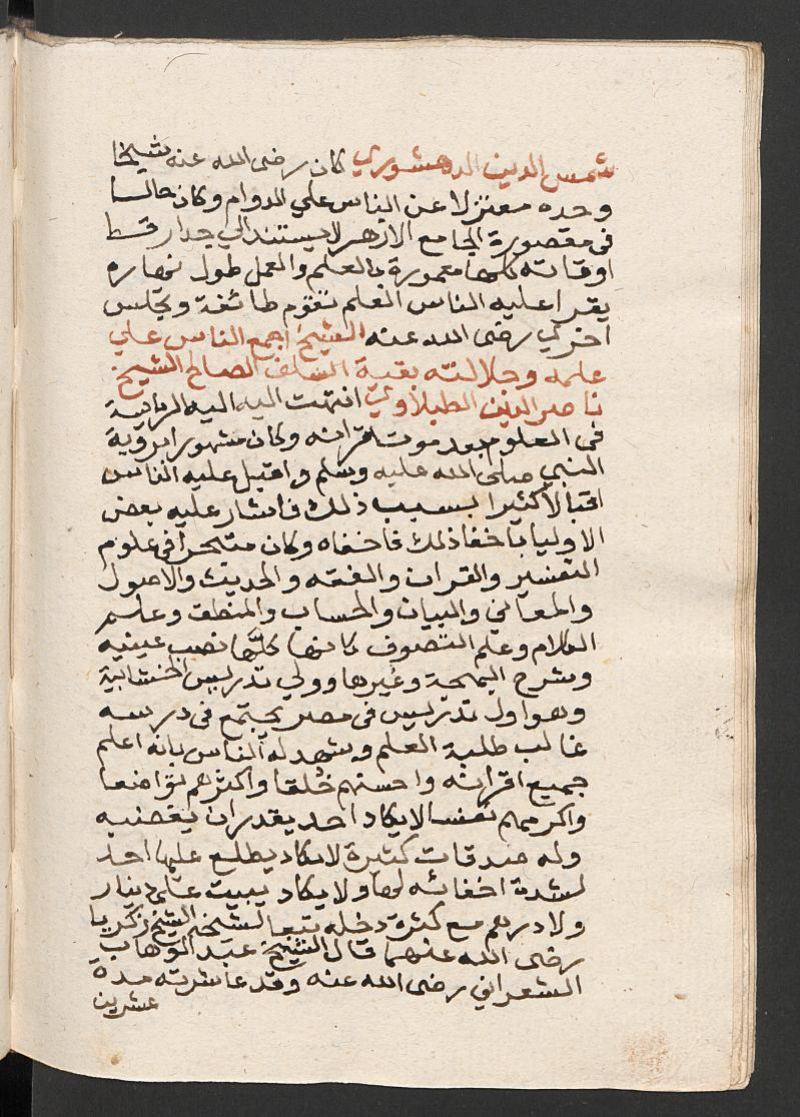 شمس الدين الدهشوري كان رضى الله عنه شيخا
وحده معتزلا عن الناس علي الدوام وكان جالسا
فى مقصورة الجامع الازهر لا يستند الي جدار قط
اوقاته كلها معمورة بالعلم والعمل طول نهاره
يقرا عليه الناس العلم تقوم طائفة وتجلس
اخري رضى الله عنه الشيخ اجمع الناس علي
علمه وجلالته بقية السلف الصالح الشيخ
ناصر الدين الطبلاوي انتهت اليه اليه الرياسة
فى العلوم بعد موت اقرانه وكان مشهورا برؤية
النبي صلى الله عليه وسلم واقبل عليه الناس
اقبالا كثيرا بسبب ذلك فاشار عليه بعض
الاوليا باخفا ذلك فاخفاه وكان متبحرا فى علوم
التفسير والقران والفقه والحديث والاصول
والمعاني والبيان والحساب والمنطق وعلم
الكلام وعلم التصوف كانها كلها نصب عينيه
وشرح البهجة وغيرها وولي تدريس الخشابية
وهو اول تدريس فى مصر يجتمع فى درسه
غالب طلبة العلم وشهد له الناس بانه اعلم
جميع اقرانه واحسنهم خلقا واكثرهم تواضعا
واكرمهم نفسا لا يكاد احد يقدر ان يغضبه
وله صدقات كثيرة لا يكاد يطلع عليها احد
لشدة اخفائه لها ولا يكاد يبيت علي دينار
ولا درهم مع كثرة دخله تبعا لشيخه الشيخ زكريا
رضى الله عنهما قال الشيخ عبد الوهاب
الشعراني رضى الله عنه وقد عاشرته مدة
عشرين